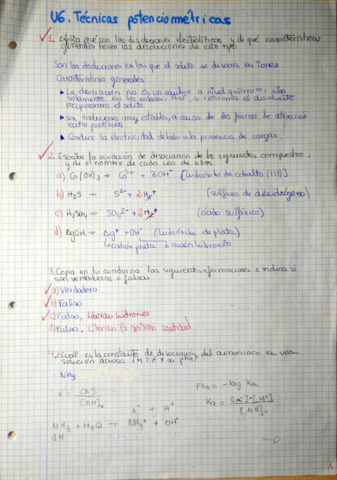 U6. Técnicas potenciométricas
1. Explica qué son las disoluciones electrolíticas y de qué características generales tienen las disoluciones de este tipo
Son las disoluciones en las que el soluto se disocia en Iones
Características generales:
La disociación no es un a nivel químico, sino
solamente en los enlaces si retiramos el disolvente
recuperamos el soluto
Son disoluciones muy estables, a causa de las fuerzas de atracción
entre partículas
Conduce la electricidad debido a la presencia de cargas
2. Escribe la ecuación de disociación de los siguientes compuestos,
y di el nombre de cada uno de ellos.
a) Co(OH)3 → Co3+ + 3OH- [hidróxido de cobalto (III)]
b) H2S → S2- + 2H+ (sulfuro de dihidrógeno)
c) H2SO4 → SO4 2- + 2H+ (ácido sulfúrico)
d) AgOH → Ag+ + OH- (hidróxido de plata)
catión plata anión hidróxido
3. Copia en tu cuaderno las siguientes afirmaciones e indica si
son verdaderas o falsas
a) Verdadero
b) Falso
c) Falso, Libera hidriones
d) Falso. Liberan la misma cantidad
4. ¿Cuál es la constante de disociación del amoniaco en una
disolución acuosa
NH3
pKa = -log Ka
[A-]
[AH]
Ka = [A-]·[H+]
[AH]
A- + H+
NH3 + H2O → NH4+ + OH-